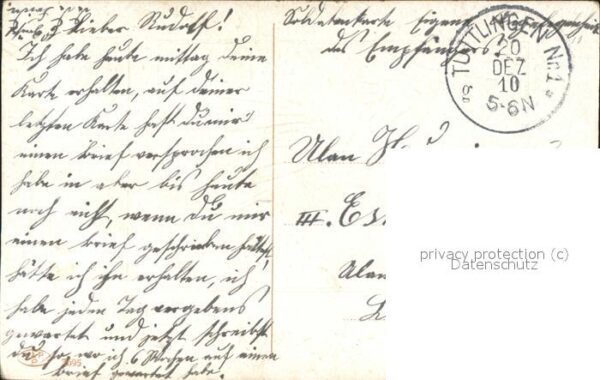 Lieber Rudolf!
Ich habe heute mittag deine
Karte erhalten, auf deiner
letzten Karte hast du mir
einen Brief versprochen ich
habe in aber bis heute
noch nicht, wenn du mir
einen brief geschrieben hättest
hätte ich ihn erhalten, ich
habe jeden Tag vergebens
gewartet und jetzt schreibst
du so, wo ich 6 Wochen auf einen
brief gewartet habe.
Soldatenkarte Eigene Angelegenheit
des Empfängers
TUTTLINGEN Nr.1
20
DEZ
10
5-6N
Ulan
III. Es
Ulan
privacy protection (c)
Datenschutz